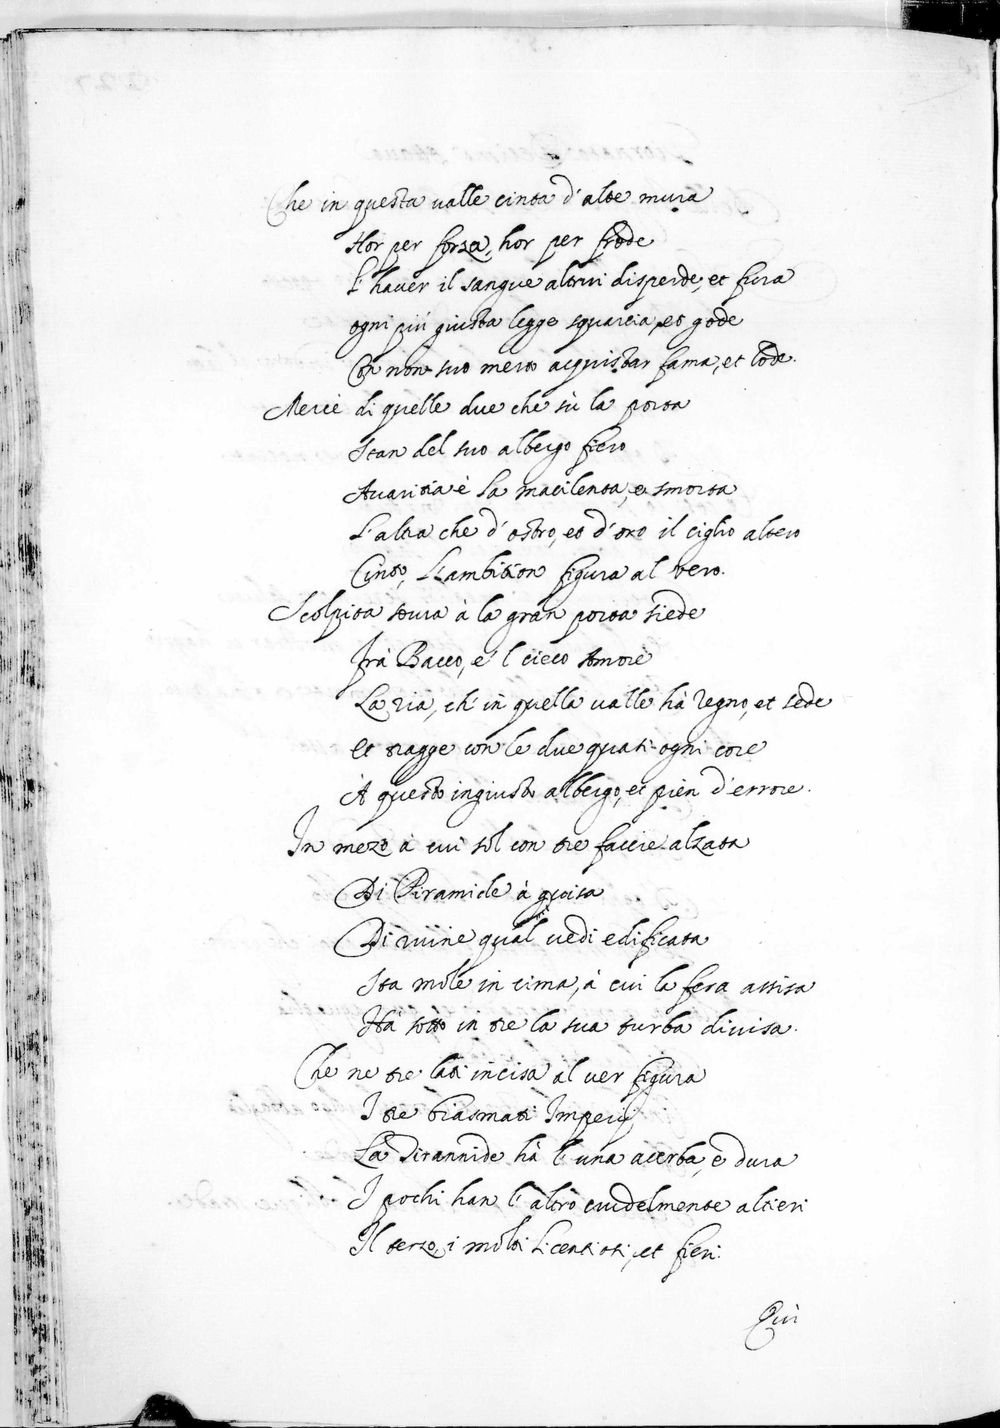 Che in questa ualle cinta d'alte mura
Hor per forza, hor per frode
L'hauer il sangue altrui disperde, et fura
ogni più giusta legge squarcia, et gode
Con non suo merto acquistar fama, et lode.
Mercè di quelle due che sù la porta
Stan del suo albergo fiero
Auaritia è la macilenta, e smorta
L'altra che d'ostro, et d'oro il ciglio altero
Cinto, L'ambition figura al vero.
Scolpita soura à la gran porta siede
Frà Bacco, e 'l cieco Amore
La ria, ch' in quella ualle hà Regno, et sede
Et tragge con le due quasi ogni core
À questo ingiusto albergo, et pien d'errore.
In mezo à cui sol con tre faccie alzata
Di Piramide à guisa
Di ruine qual uedi edificata
Sta mole in cima, à cui la fera assisa
Hà sotto in tre la sua turba diuisa.
Che ne tre lati incisa al uer figura
I tre biasmati Imperij
La Tirannide hà l'una acerba, è dura
I pochi han l'altro crudelmente altieri
Il terzo, i molti Licentiosi, et fieri.
Qui